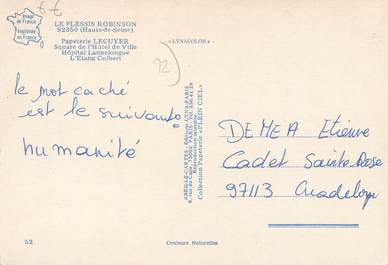 6 €
Image
de France
Imprimée
en France
LE PLESSIS ROBINSON
92350 (Hauts-de-Seine)
Papeterie LECUYER
Square de l'Hôtel de Ville
Hôpital Lannelongue
L'Etang Colbert
«LYNACOLOR»
92)
le mot caché
est le suivant:
humanité
ABEILLE-CARTES - Editions LYNA-PARIS
Reproduction interdite
Collection Papeterie «PLEIN CIEL»
DEMEA Etienne
Cadet Sainte Rose
97113 Guadeloupe
52
Couleurs Naturelles